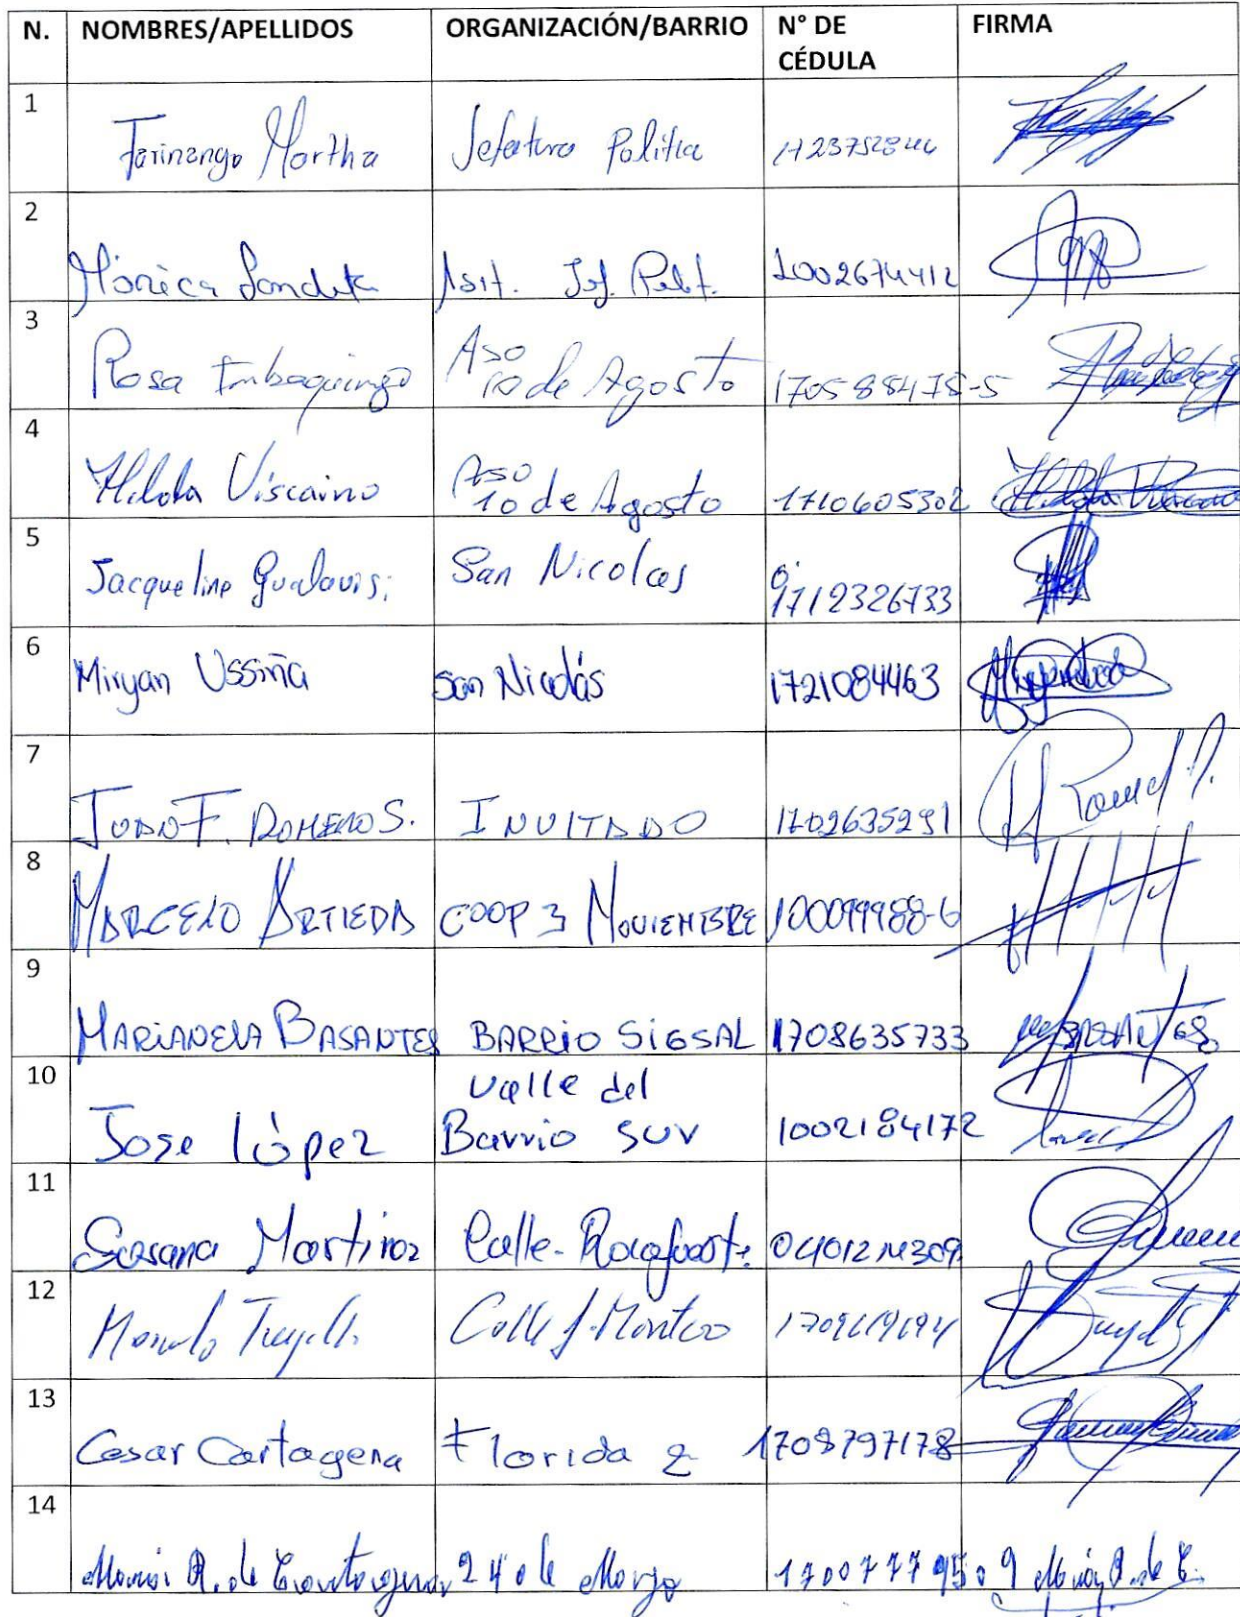 N. NOMBRES/APELLIDOS ORGANIZACIÓN/BARRIO N° DE CÉDULA FIRMA
1 Farinango Martha Jefatura Política 1723752844
2 Mónica Asit. Jef. Polit. 1002674412
3 Rosa Imbaquingo Aso 10 de Agosto 170588478-5
4 Hilda Viscaino Aso 10 de Agosto 1710605302 Hilda Viscaino
5 Jacqueline Gualavisi San Nicolas 1712326733
6 Miryan Ussiña San Nicolás 1721084463
7 Juan F. Romero S. INVITADO 1702635291
8 MARCELO ARTIEDA COOP 3 NOVIEMBRE 100099988-6
9 MARIANELA BASANTES BARRIO SIGSAL 1708635733
10 Jose López Valle del Barrio Sur 1002184172
11 Susana Martinez Calle Rocafuerte
12 Manolo Trujillo Calle J. Montalvo
13 Cesar Cartagena Florida 2 1708797178
14 María R. de Cartagena 24 de Mayo 170077795-9 María R. de C.